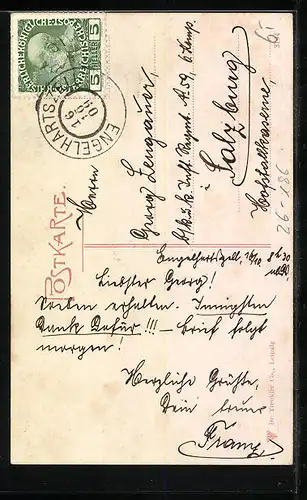 5 HELLER 5
ENGELHARTSZELL
16
POSTKARTE.
Herrn
Georg Lengauer,
b/k. u. k. Inft. Regmt. No 59, 6. Komp.
i
Salzburg
Hofstallkaserne,
26-186
Engelhartszell, 16/10. 8h 30
Liebster Georg!
Soeben erhalten. Innigsten
Dank dafür!!! – Brief folgt
morgen!
Herzliche Grüße,
Dein treuer
Franz
Dr. Trenkler Co., Leipzig